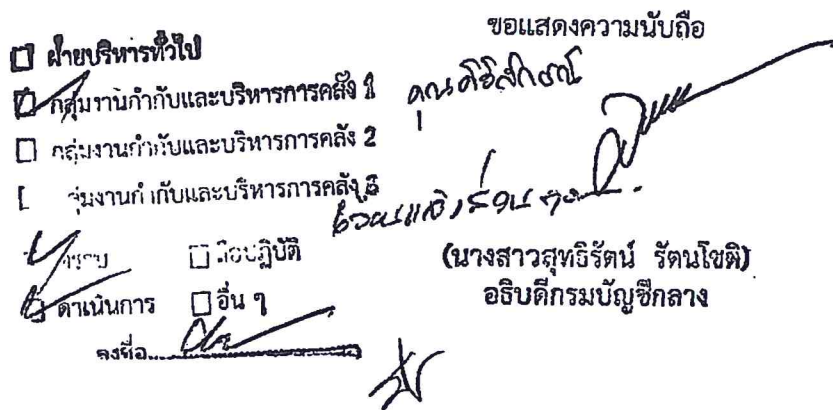 ขอแสดงความนับถือ
ฝ่ายบริหารทั่วไป
กลุ่มงานกำกับและบริหารการคลัง 1
กลุ่มงานกำกับและบริหารการคลัง 2
กลุ่มงานกำกับและบริหารการคลัง 3
ทราบ ถือปฏิบัติ
ดำเนินการ อื่น ๆ
ลงชื่อ
(นางสาวสุทธิรัตน์ รัตนโชติ)
อธิบดีกรมบัญชีกลาง